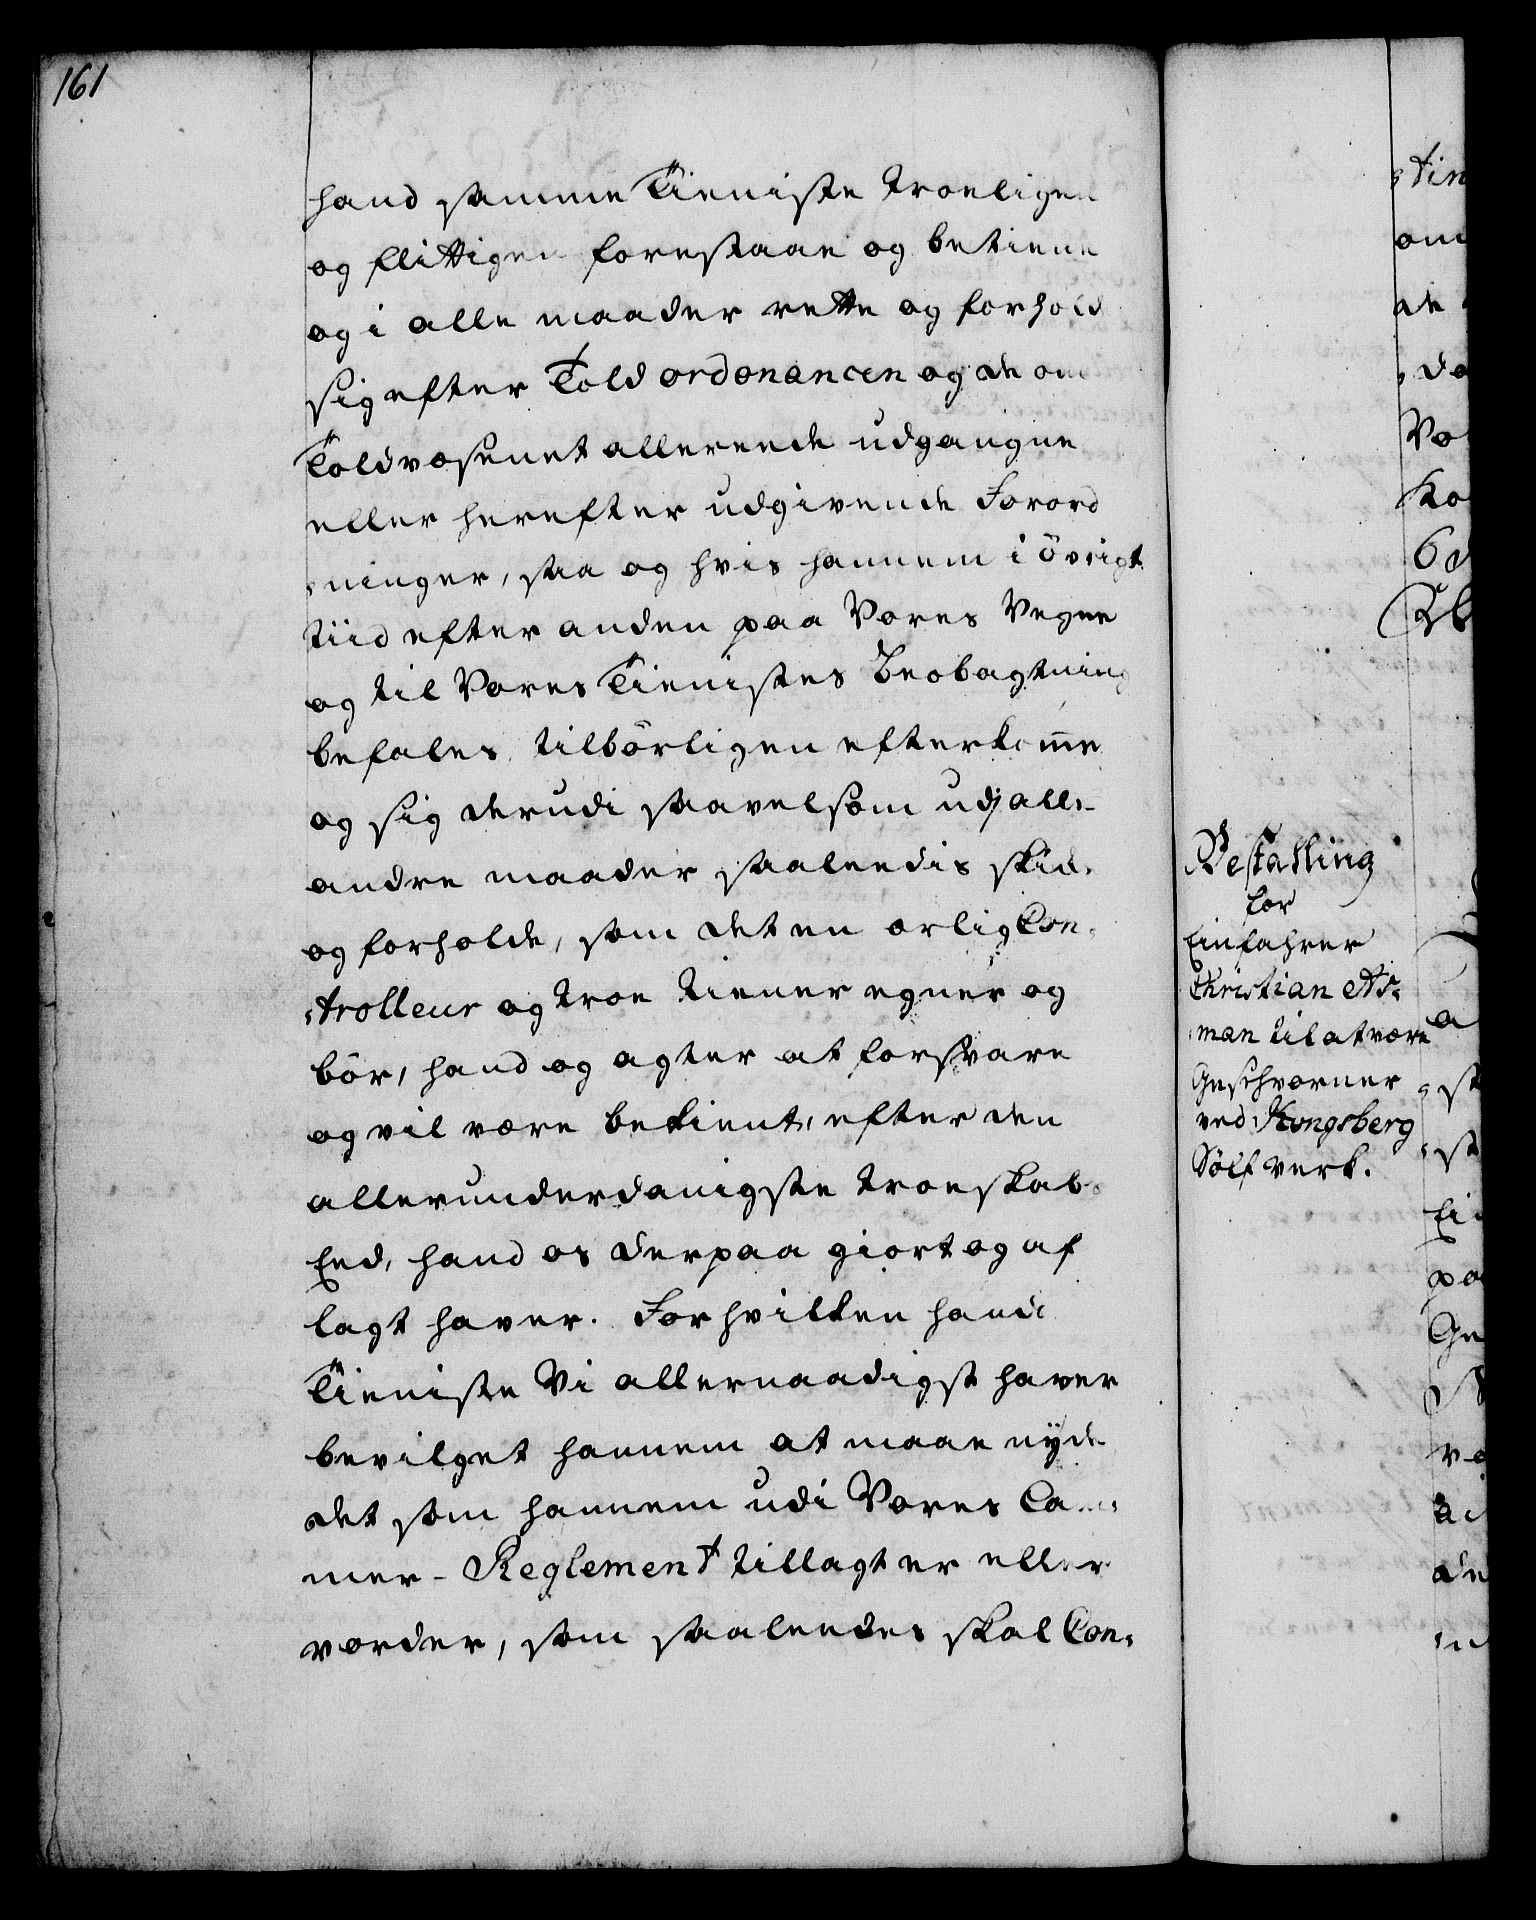 161
hand samme Tieniste troeligen
og flittigen forestaae og betiene
og i alle maader rette og forhold
sig efter Told ordonancen og de om
Toldvæsenet allereede udgangne
eller herefter udgivende Forord
ninger, saa og hvis hannem i övrigt
tiid efter anden paa Vores Vegne
og til Vores Tienistes Beobagtning
befales, tilbörligen efterkom̄e
og sig derudi saavelsom udj alle
andre maader saaleedis skicke
og forholde, som det en ærlig Con-
trolleur og troe tiener egner og
bör, hand og agter at forsvare
og vil være bekient, efter den
allerunderdanigste troeskabs
Eed, hand os derpaa giort og af
lagt haver. For hvilken hans
Tieniste Vi allernaadigst haver
bevilget hannem at maae nyde
det som hannem udi Vores Cam-
mer-Reglement tillagt er eller
vorder, som saaleedes skal Con-
Bestalling
for
Einfahrer
Christian As-
man til at være
Geschworner
ved Kongsberg
Sölfverk.